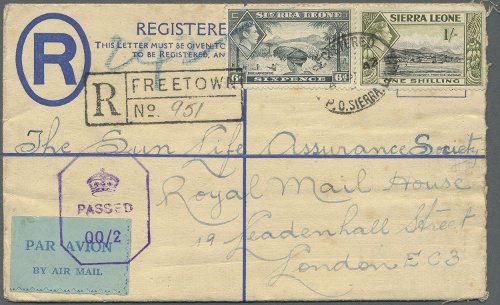 R
REGISTERE
THIS LETTER MUST BE GIVEN
TO BE REGISTERED, AN
SIERRA LEONE
6D
SIXPENCE
6D
SIERRA LEONE
1/-
ONE SHILLING
REGISTERED
G.P.O. SIERRA
R
FREETOWN
No. 951
The Sun Life Assurance Society
Royal Mail House
19 Leadenhall Street
London EC3
PASSED
OO/2
PAR AVION
BY AIR MAIL